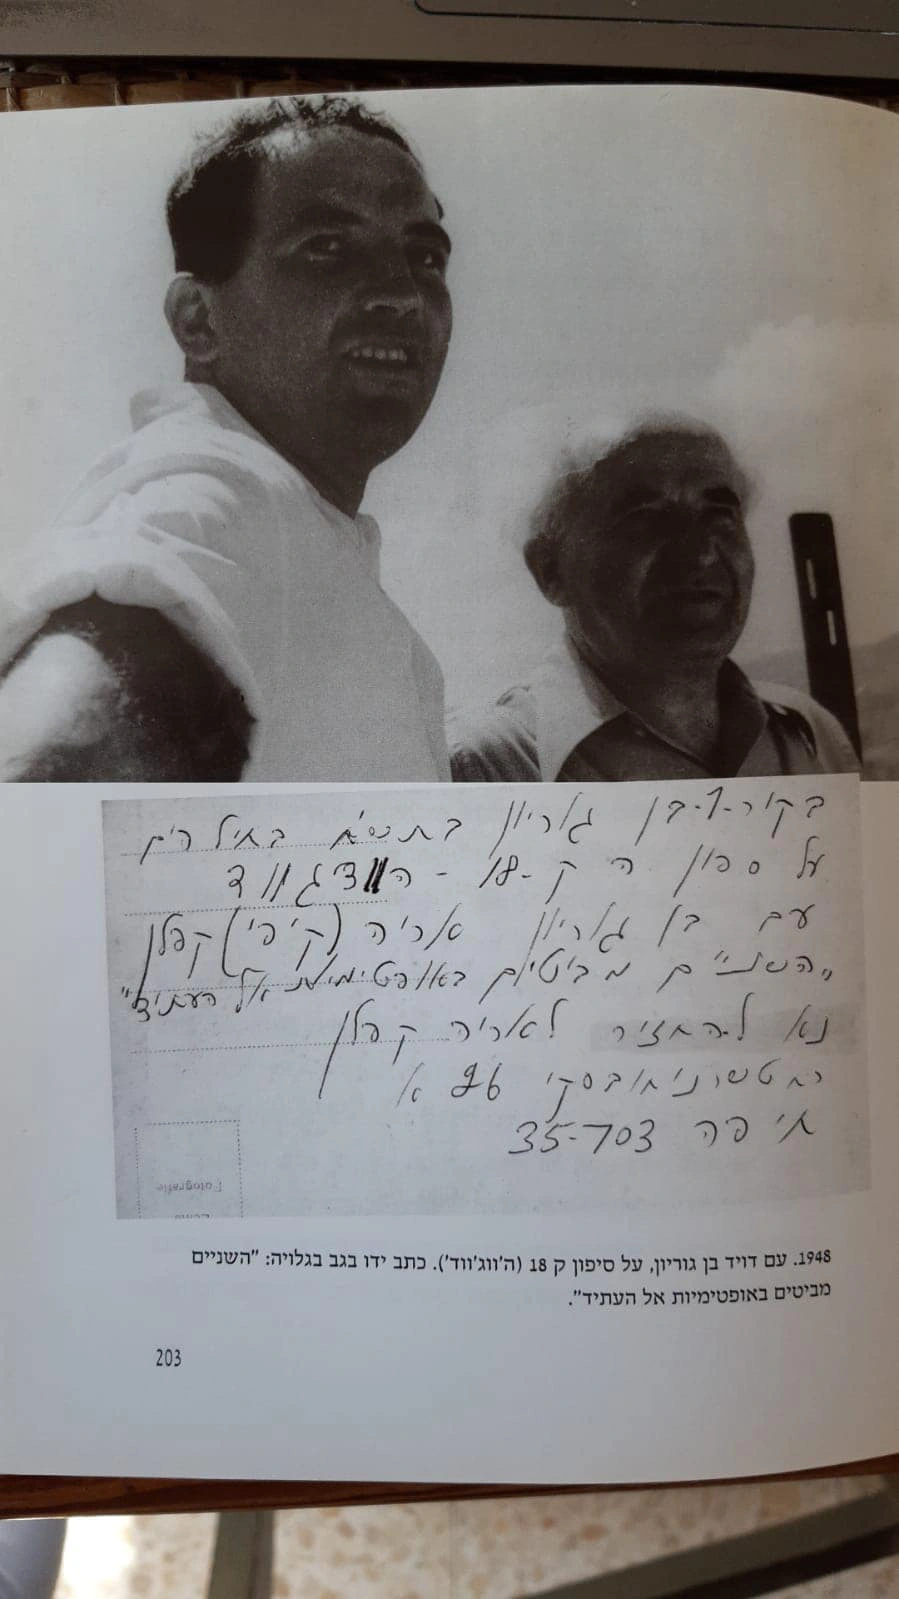 בקור-ד. בן גוריון בתש"ח בחיל הים
על ספון ה ק-18 - הודג'ווד
עם בן גוריון אריה (קיפי) קפלן
"השניים מביטים באופטימיות אל העתיד"
נא להחזיר לאריה קפלן
רח טשרניחובסקי 26 א
חיפה 35-703
Fotografie
1948. עם דויד בן גוריון, על סיפון ק 18 (ה'ווג'ווד'). כתב ידו בגב בגלויה: "השניים
מביטים באופטימיות אל העתיד".
203